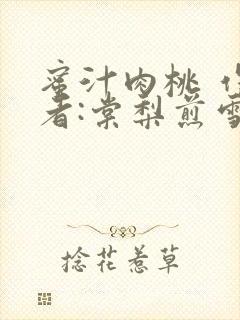 蜜汁肉桃
者:棠梨煎雪
捻花惹草